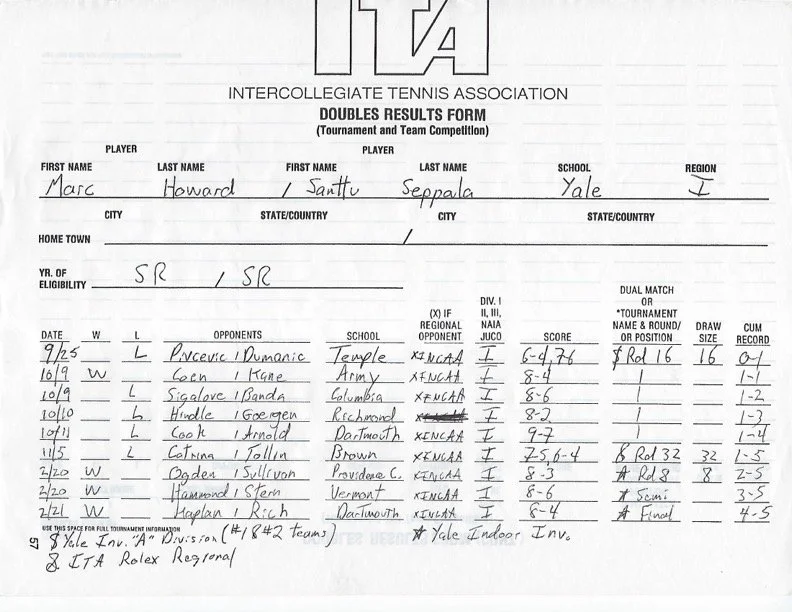 ITA
INTERCOLLEGIATE TENNIS ASSOCIATION
DOUBLES RESULTS FORM
(Tournament and Team Competition)
PLAYER PLAYER
FIRST NAME LAST NAME FIRST NAME LAST NAME SCHOOL REGION
Marc Howard / Santtu Seppala Yale I
CITY STATE/COUNTRY CITY STATE/COUNTRY
HOME TOWN /
YR. OF ELIGIBILITY SR / SR
DATE W L OPPONENTS SCHOOL (X) IF REGIONAL OPPONENT DIV. I II, III, NAIA JUCO SCORE DUAL MATCH OR *TOURNAMENT NAME & ROUND/ OR POSITION DRAW SIZE CUM RECORD
9/25 L / Dumanic Temple XINCAA I 6-4, 76 $ Rd 16 16 0-1
10/9 W Coen / Kane Army XINCAA I 8-4 | 1-1
10/9 L Sigalove / Banda Columbia XINCAA I 8-6 | 1-2
10/10 L Hindle / Goergen Richmond I 8-2 | 1-3
10/11 L Cook / Arnold Dartmouth XINCAA I 9-7 | 1-4
11/5 L Catrina / Tollin Brown XINCAA I 75, 6-4 & Rd 32 32 1-5
2/20 W Ogden / Sullivan Providence C. XINCAA I 8-3 * Rd 8 8 2-5
2/20 W Hammond / Stern Vermont XINCAA I 8-6 * Semi 3-5
2/21 W Kaplan / Rich Dartmouth XINCAA I 8-4 * Final 4-5
USE THIS SPACE FOR FULL TOURNAMENT INFORMATION
$ Yale Inv. "A" Division (#1 & #2 teams) * Yale Indoor Inv.
& ITA Rolex Regional
57